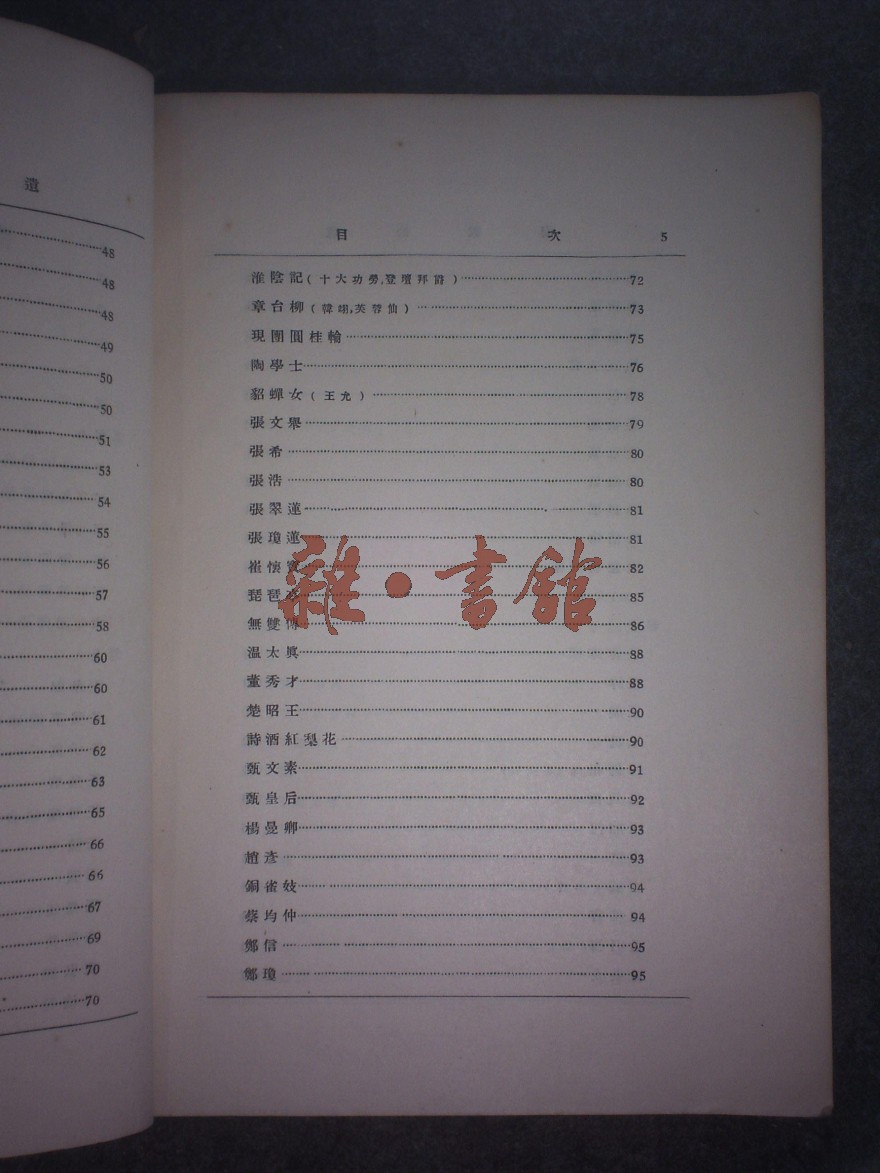 遺
48
48
48
49
50
50
51
53
54
55
56
57
58
60
60
61
62
63
65
66
66
67
69
70
70
目 次 5
淮陰記(十大功勞,登壇拜爵)72
章台柳(韓翊,芙蓉仙)73
現團圓桂輪75
陶學士76
貂蟬女(王允)78
張文舉79
張希80
張浩80
張翠蓮81
張瓊蓮81
崔懷寶82
琵琶85
無雙傳86
溫太眞88
董秀才88
楚昭王90
詩酒紅梨花90
甄文素91
甄皇后92
楊曼卿93
趙彥93
銅雀妓94
蔡均仲94
鄭信95
鄭瓊95
雜·書館